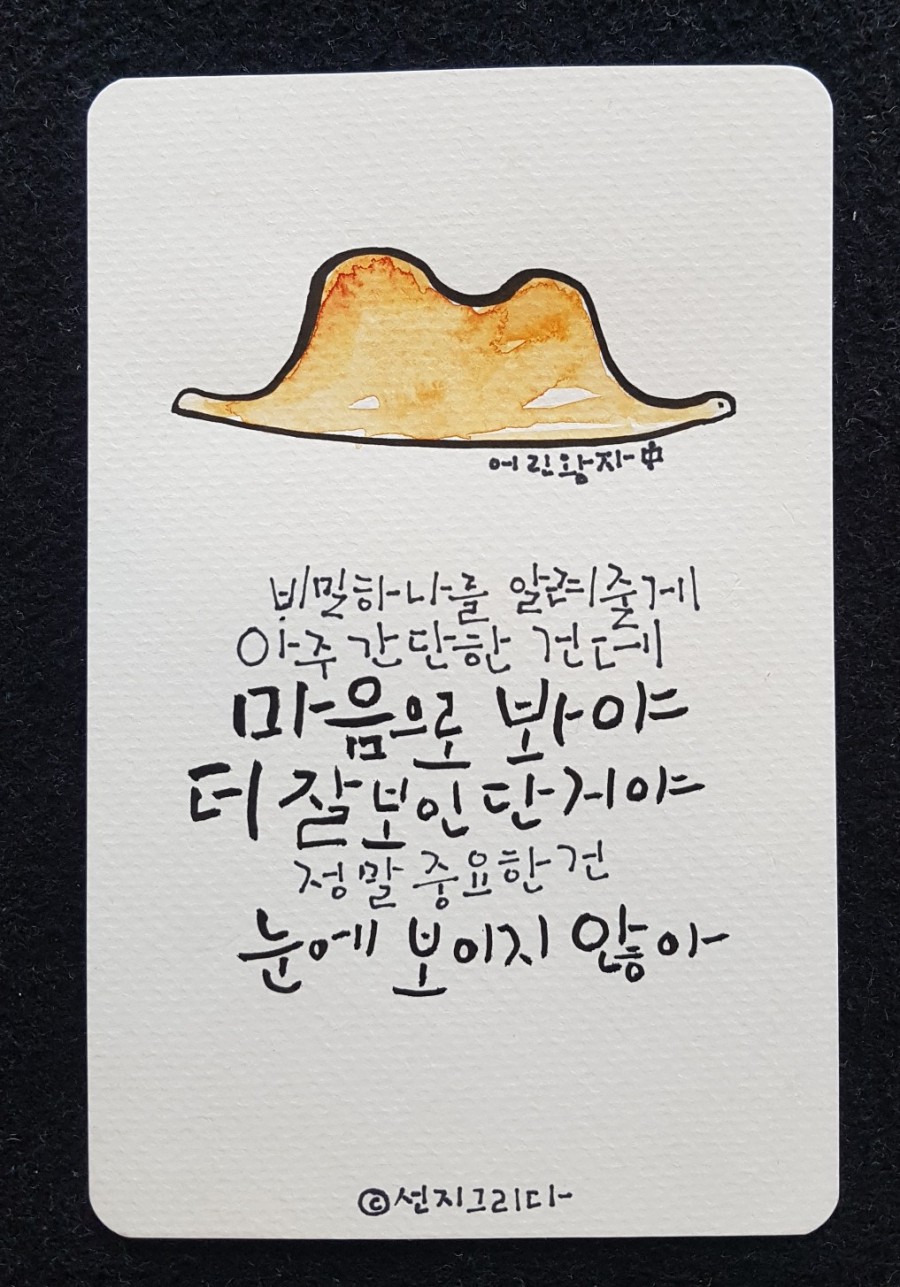 어린왕자 中
비밀하나를 알려줄게
아주 간단한 건데
마음으로 봐야
더 잘 보인단거야
정말 중요한 건
눈에 보이지 않아
©선지그리다